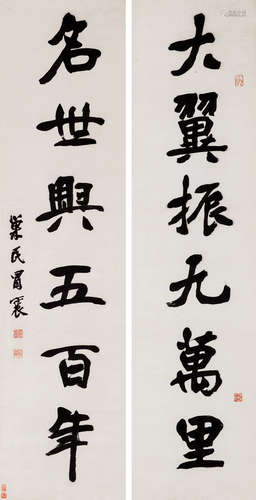 大翼振九萬里
名世興五百年
巢民冒襄